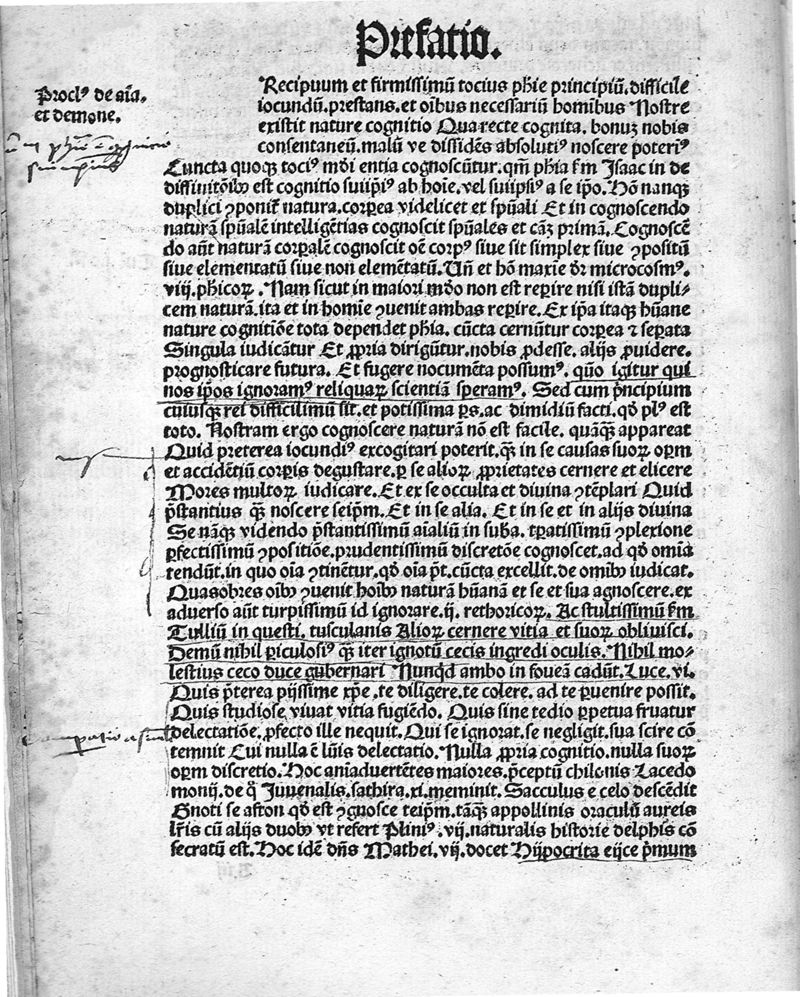 Prefatio.
Proclꝰ de aīa.
et demone.
Recipuum et firmissimū tocius phīe principiū. difficile
iocundū. prestans. et oībus necessariū hominibus Nostre
existit nature cognitio Qua recte cognita. bonuꝫ nobis
consentaneū. malū ve dissidēs absolutiꝰ noscere poterīꝰ
Cuncta quoqꝫ tociꝰ mōi entia cognoscūtur. qm̄ phīa ẜm Isaac in de
diffinitōibꝰ est cognitio suiip̄iꝰ ab hoīe. vel suiipsiꝰ a se ip̄o. Hōi nanqꝫ
duplici ꝯponit̄ natura. corꝑea videlicet et spūali Et in cognoscendo
naturā spūalē intelligētias cognoscit spūales et cāꝫ primā. Cognoscē
do aūt naturā corꝑalē cognoscit oē corpꝰ siue sit simplex siue ꝯpositū
siue elementatū siue non elemētatū. Un̄ et hō maxīe dr̄ microcosmꝰ.
viij. phīcoꝝ. Nam sicut in maiori mōo non est reꝑire nisi istā dupli-
cem naturā. ita et in homīe ꝯuenit ambas reꝑire. Ex ip̄a itaqꝫ hūane
nature cognitiōe tota dependet phīa. cūcta cernūtur corꝑea ⁊ seꝑata
Singula iudicātur Et ꝓpria dirigūtur. nobis ꝓdesse. alijs ꝓuidere.
prognosticare futura. Et fugere nocumēta possumꝰ. quō igitur qui
nos ip̄os ignoramꝰ reliquaꝝ scientiā speramꝰ. Sed cum p̄ncipium
cuiusqꝫ rei difficilimū sit. et potissima ꝑs. ac dimidiū facti. qd̄ plꝰ est
toto. Nostram ergo cognoscere naturā nō est facile. quāqꝫ appareat
Quid preterea iocundiꝰ excogitari poterit. qꝫ in se causas suoꝝ oꝑm
et accidētiū corꝑis degustare. ꝑ se alioꝝ ꝓprietates cernere et elicere
Mores multoꝝ iudicare. Et ex se occulta et diuina ꝯtēplari Quid
p̄stantius qꝫ noscere seip̄m. Et in se alia. Et in se et in alijs diuina
Se nāqꝫ videndo p̄stantissimū aīaliū in suba. tꝑatissimū ꝯplexione
ꝑfectissimū ꝯpositiōe. prudentissimū discretōe cognoscet. ad qd̄ omīa
tendūt. in quo oīa ꝯtinētur. qd̄ oīa p̄t. cūcta excellit. de omībꝰ iudicat.
Quasobres oībꝰ ꝯuenit hoībꝰ naturā hūanā et se et sua agnoscere. ex
aduerso aūt turpissimū id ignorare. ij. rethoricoꝝ. Ac stultissimū ẜm
Tulliū in questi. tusculanis Alioꝝ cernere vitia et suoꝝ obliuisci.
Demū nihil ꝑiculosiꝰ qꝫ iter ignotū cecis ingredi oculis. Nihil mo-
lestius ceco duce gubernari Nunqd̄ ambo in foueā cadūt. Luce. vi.
Quis p̄terea pijssime xp̄e. te diligere. te colere. ad te ꝑuenire possit.
Quis studiose viuat vitia fugiēdo. Quis sine tedio ꝑpetua fruatur
delectatiōe. ꝓfecto ille nequit. Qui se ignorat. se negligit. sua scire cō
temnit Cui nulla ē lūis delectatio. Nulla ꝓpria cognitio. nulla suoꝝ
oꝑm discretio. Hoc aniaduertētes maiores. p̄ceptū chilonis Lacedo
monij. de q̄ Juuenalis. sathira. xi. meminit. Sacculus e celo descēdit
Gnoti se afton qd̄ est ꝯgnosce teip̄m. tāqꝫ appollinis oraculū aureis
lr̄is cū alijs duobꝰ vt refert Pliniꝰ. vij. naturalis historie delphis cō
secratū est. Hoc idē dn̄s Mathei. vij. docet Hijpocrita eijce p̄mum